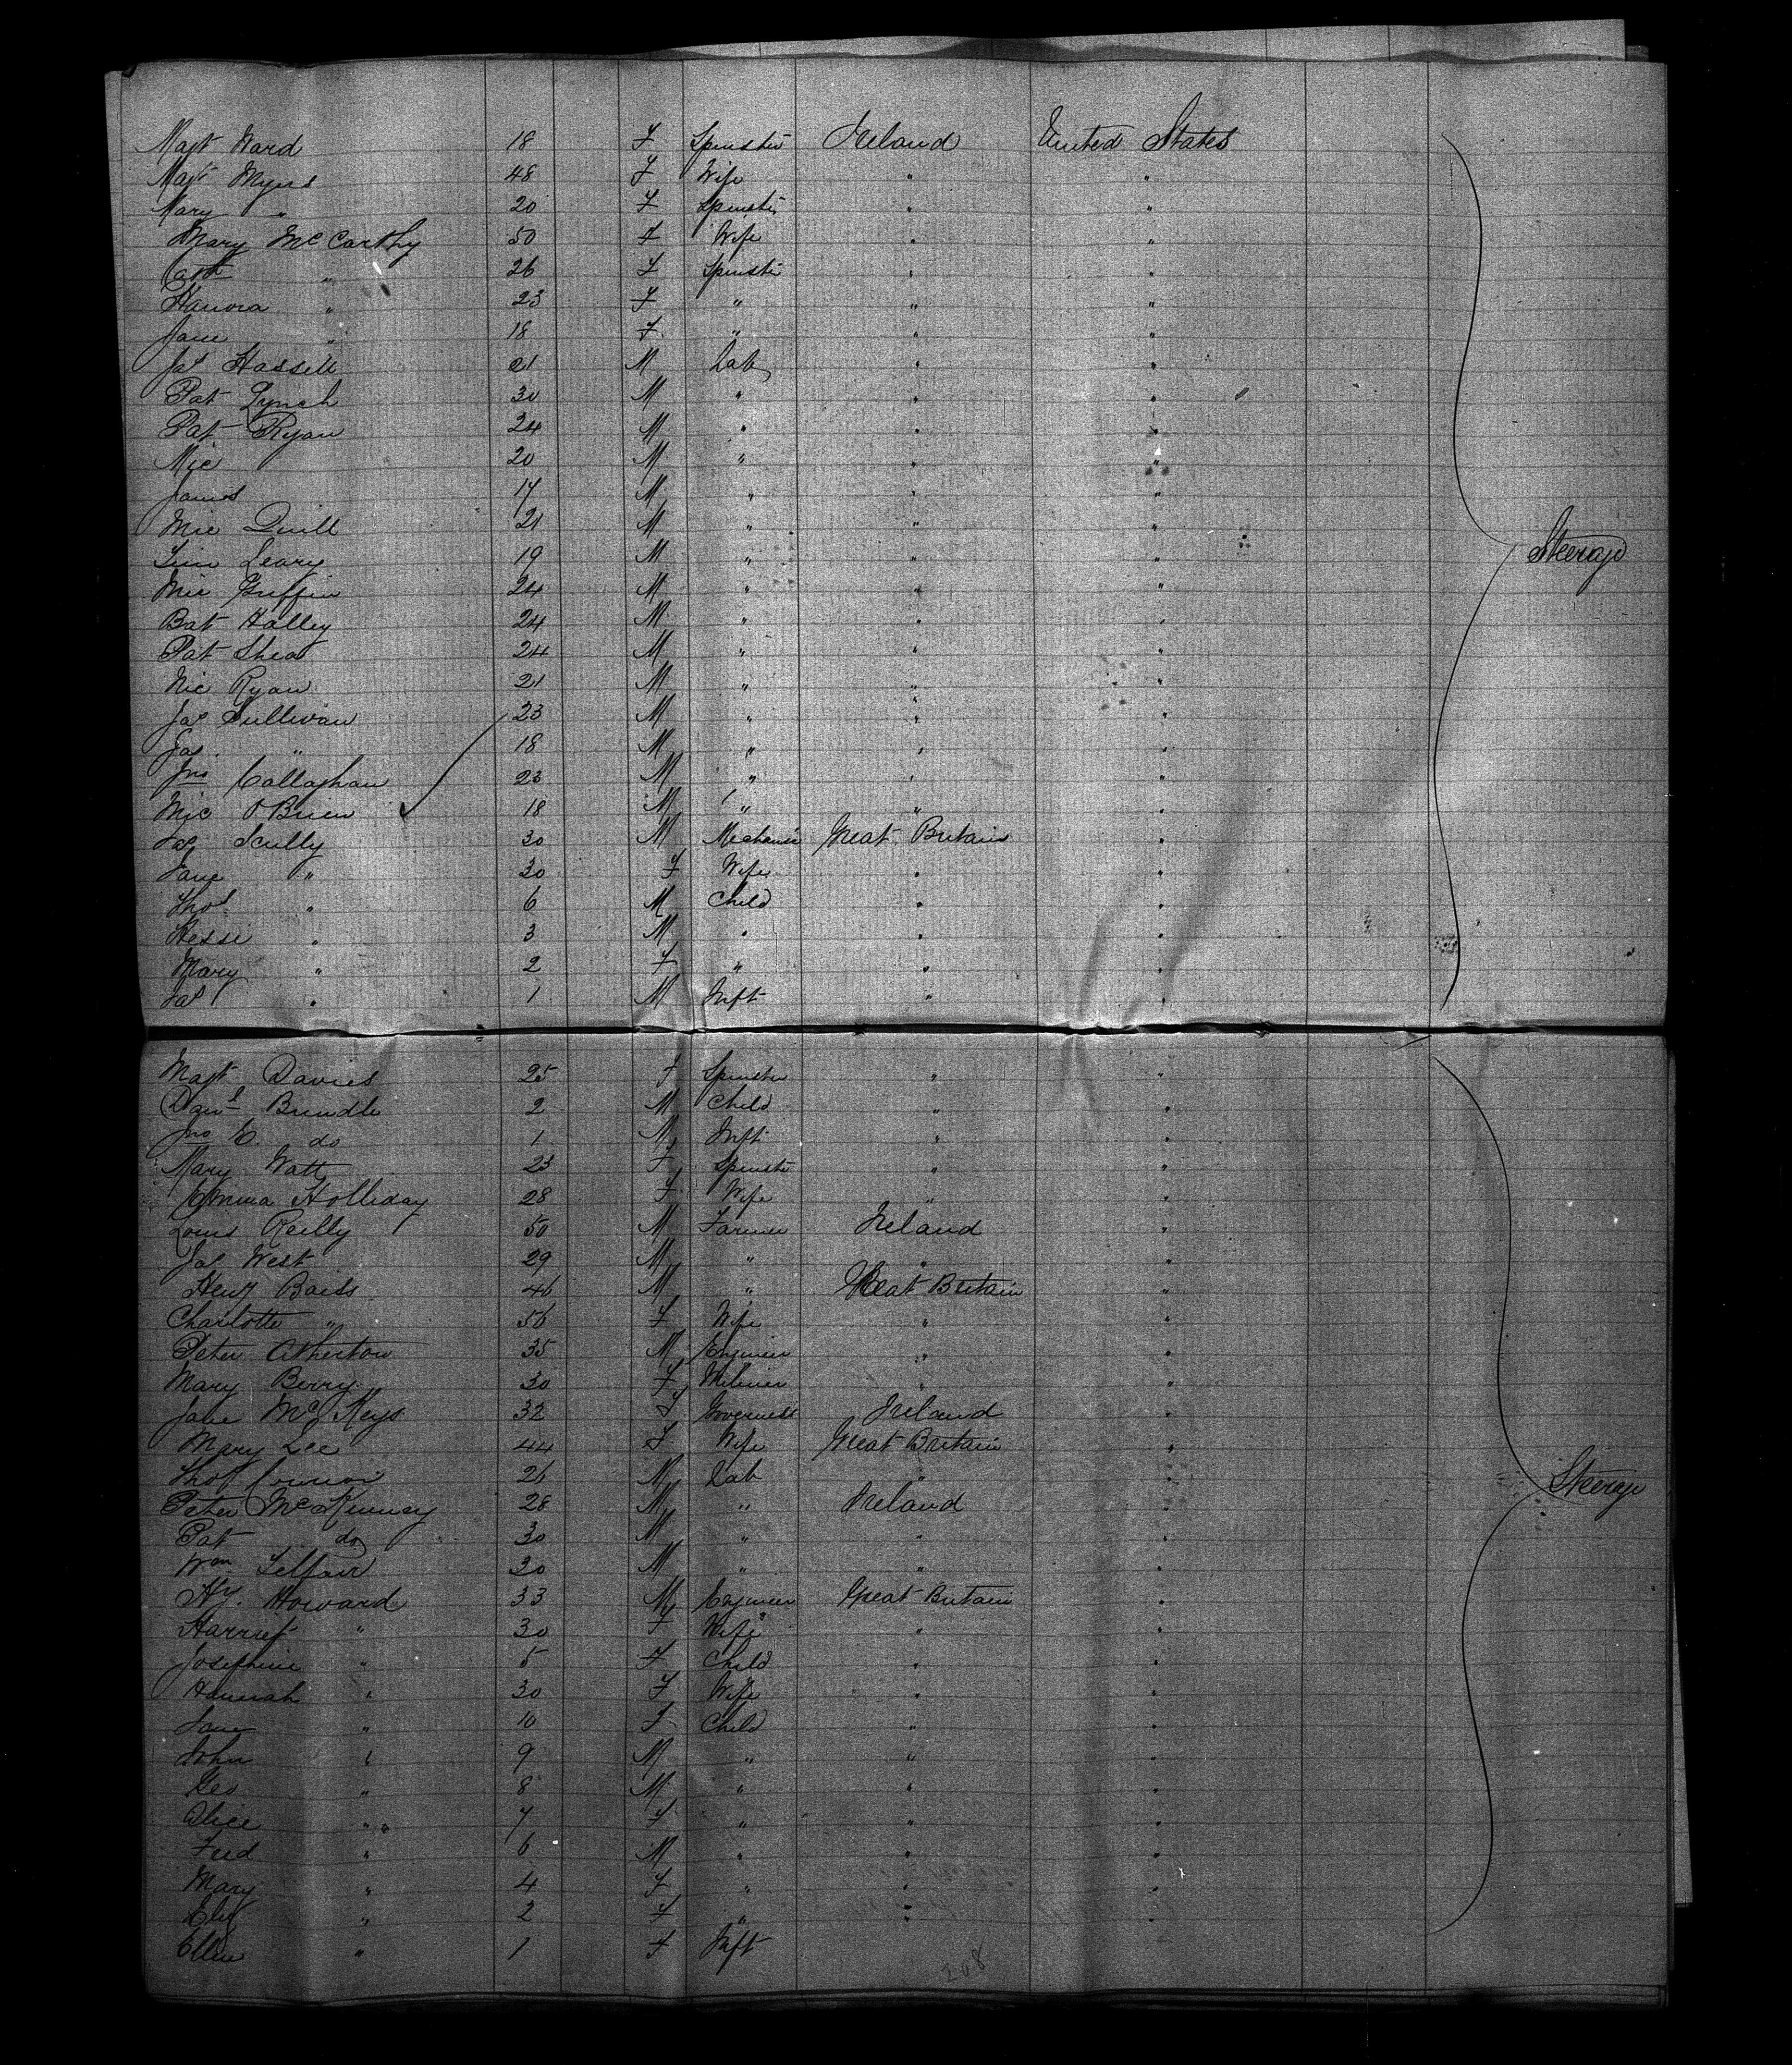 Magt Ward 18 F Spinster Ireland United States
Magt Myers 48 F Wife " "
Mary " 20 F Spinster " "
Mary McCarthy 50 F Wife " "
Cath " 26 F Spinster " "
Hanora " 23 F " " "
Jane " 18 F " " "
Jas Hassett 21 M Lab " "
Pat Lynch 30 M " " "
Pat Ryan 24 M " " "
Mic 20 M " " "
James 17 M " " "
Mic Quill 21 M " " "
Tim Leary 19 M " " " Steerage
Mic Griffin 24 M " " "
Bat Halley 24 M " " "
Pat Shea 24 M " " "
Mic Ryan 21 M " " "
Jas Sullivan 23 M " " "
Jas " 18 M " " "
Jno Callaghan 23 M " " "
Mic O'Brien 18 M " " "
Jas Scully 30 M Mechanic Great Britain "
Jane " 30 F Wife " "
Thos " 6 M Child " "
Hessi " 3 M " " "
Mary " 2 F " " "
Jas " 1 M Inft " "
Magt Davies 25 F Spinster " "
Danl Brindle 2 M Child " "
Jno E. do 1 M Inft " "
Mary Watt 23 F Spinster " "
Emma Holliday 28 F Wife " "
Louis Reilly 50 M Farmer Ireland "
Jas West 29 M " " "
Heny Baiss 46 M " Great Britain "
Charlotte " 56 F Wife " "
Peter Atherton 35 M Engineer " "
Mary Berry 30 F Miliner " "
Jane McKeys 32 F Governess Ireland "
Mary Lee 44 F Wife Great Britain "
Thos Connor 26 M Lab " " Steerage
Peter McKinney 28 M " Ireland "
Pat do 30 M " " "
Wm Telfair 30 M " " "
Hy. Howard 33 M Engineer Great Britain "
Harriet " 30 F Wife " "
Josephine " 5 F Child " "
Hannah " 30 F Wife " "
Jane " 10 F Child " "
John " 9 M " " "
Geo " 8 M " " "
Alice " 7 F " " "
Fred " 6 M " " "
Mary " 4 F " " "
Eliz " 2 F " " "
Ellen " 1 F Inft
208